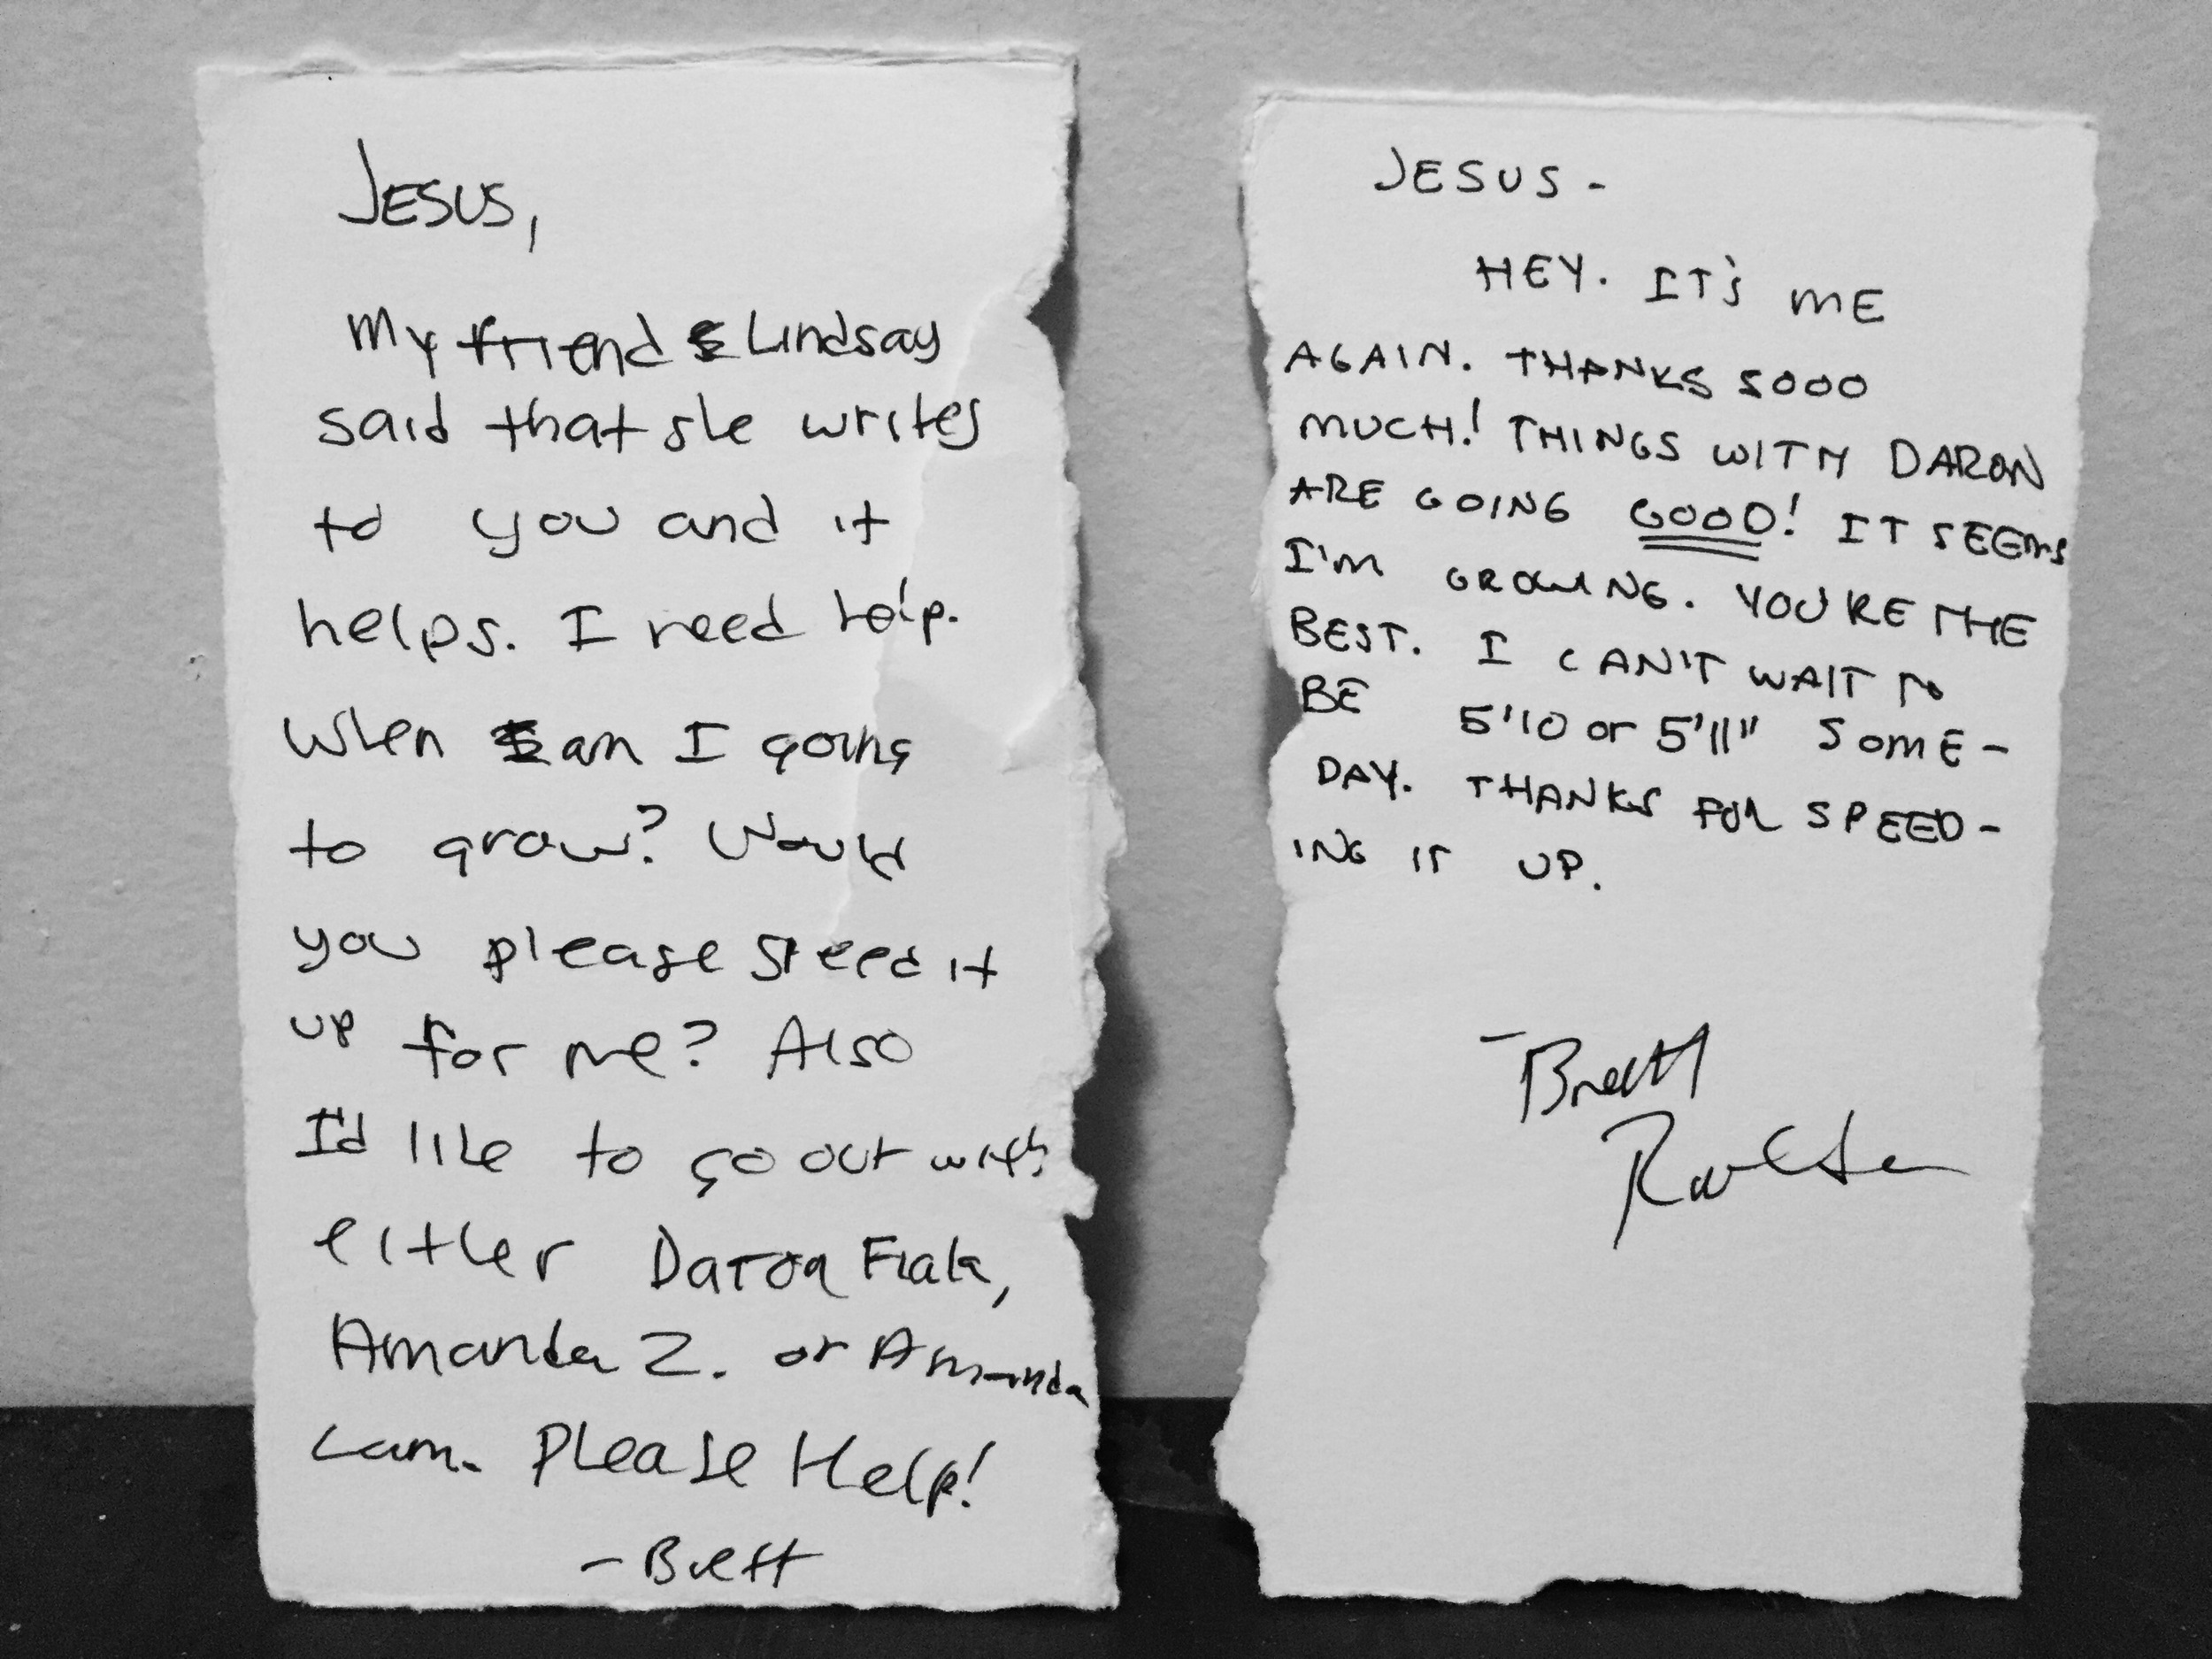 JESUS,
My friend Lindsay
said that she writes
to you and it
helps. I need help.
When am I going
to grow? Would
you please speed it
up for me? Also
I'd like to go out with
either Daron
Amanda Z. or Amanda
Lam. Please Help!
- Brett
JESUS -
HEY. IT'S ME
AGAIN. THANKS SOOO
MUCH! THINGS WITH DARON
ARE GOING GOOD! IT SEEMS
I'M GROWING. YOU'RE THE
BEST. I CAN'T WAIT TO
BE 5'10 or 5'11" SOME-
DAY. THANKS FOR SPEED-
ING IT UP.
- Brett